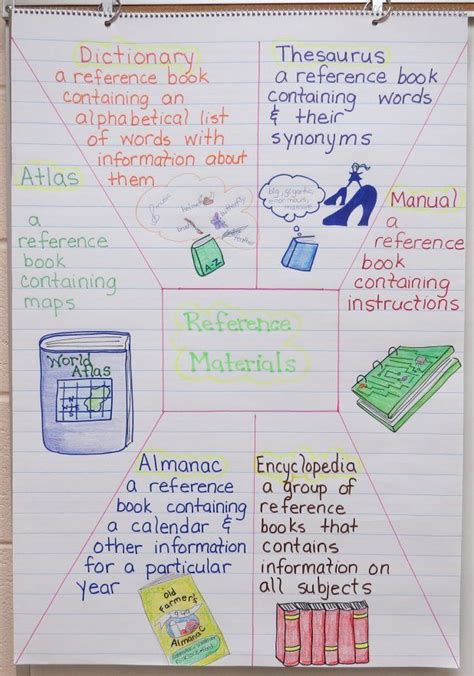 Dictionary
a reference book
containing an
alphabetical list
of words with
information about
them
A-Z
Thesaurus
a reference book
containing words
& their
synonyms
big, gigantic,
enormous,
massive
Atlas
a
reference
book
containing
maps
World
Atlas
Manual
a
reference
book
containing
instructions
Reference
Materials
Almanac
a reference
book containing
a calendar &
other information
for a particular
year
Old
Farmer's
Almanac
Encyclopedia
a group of
reference
books that
contains
information on
all subjects